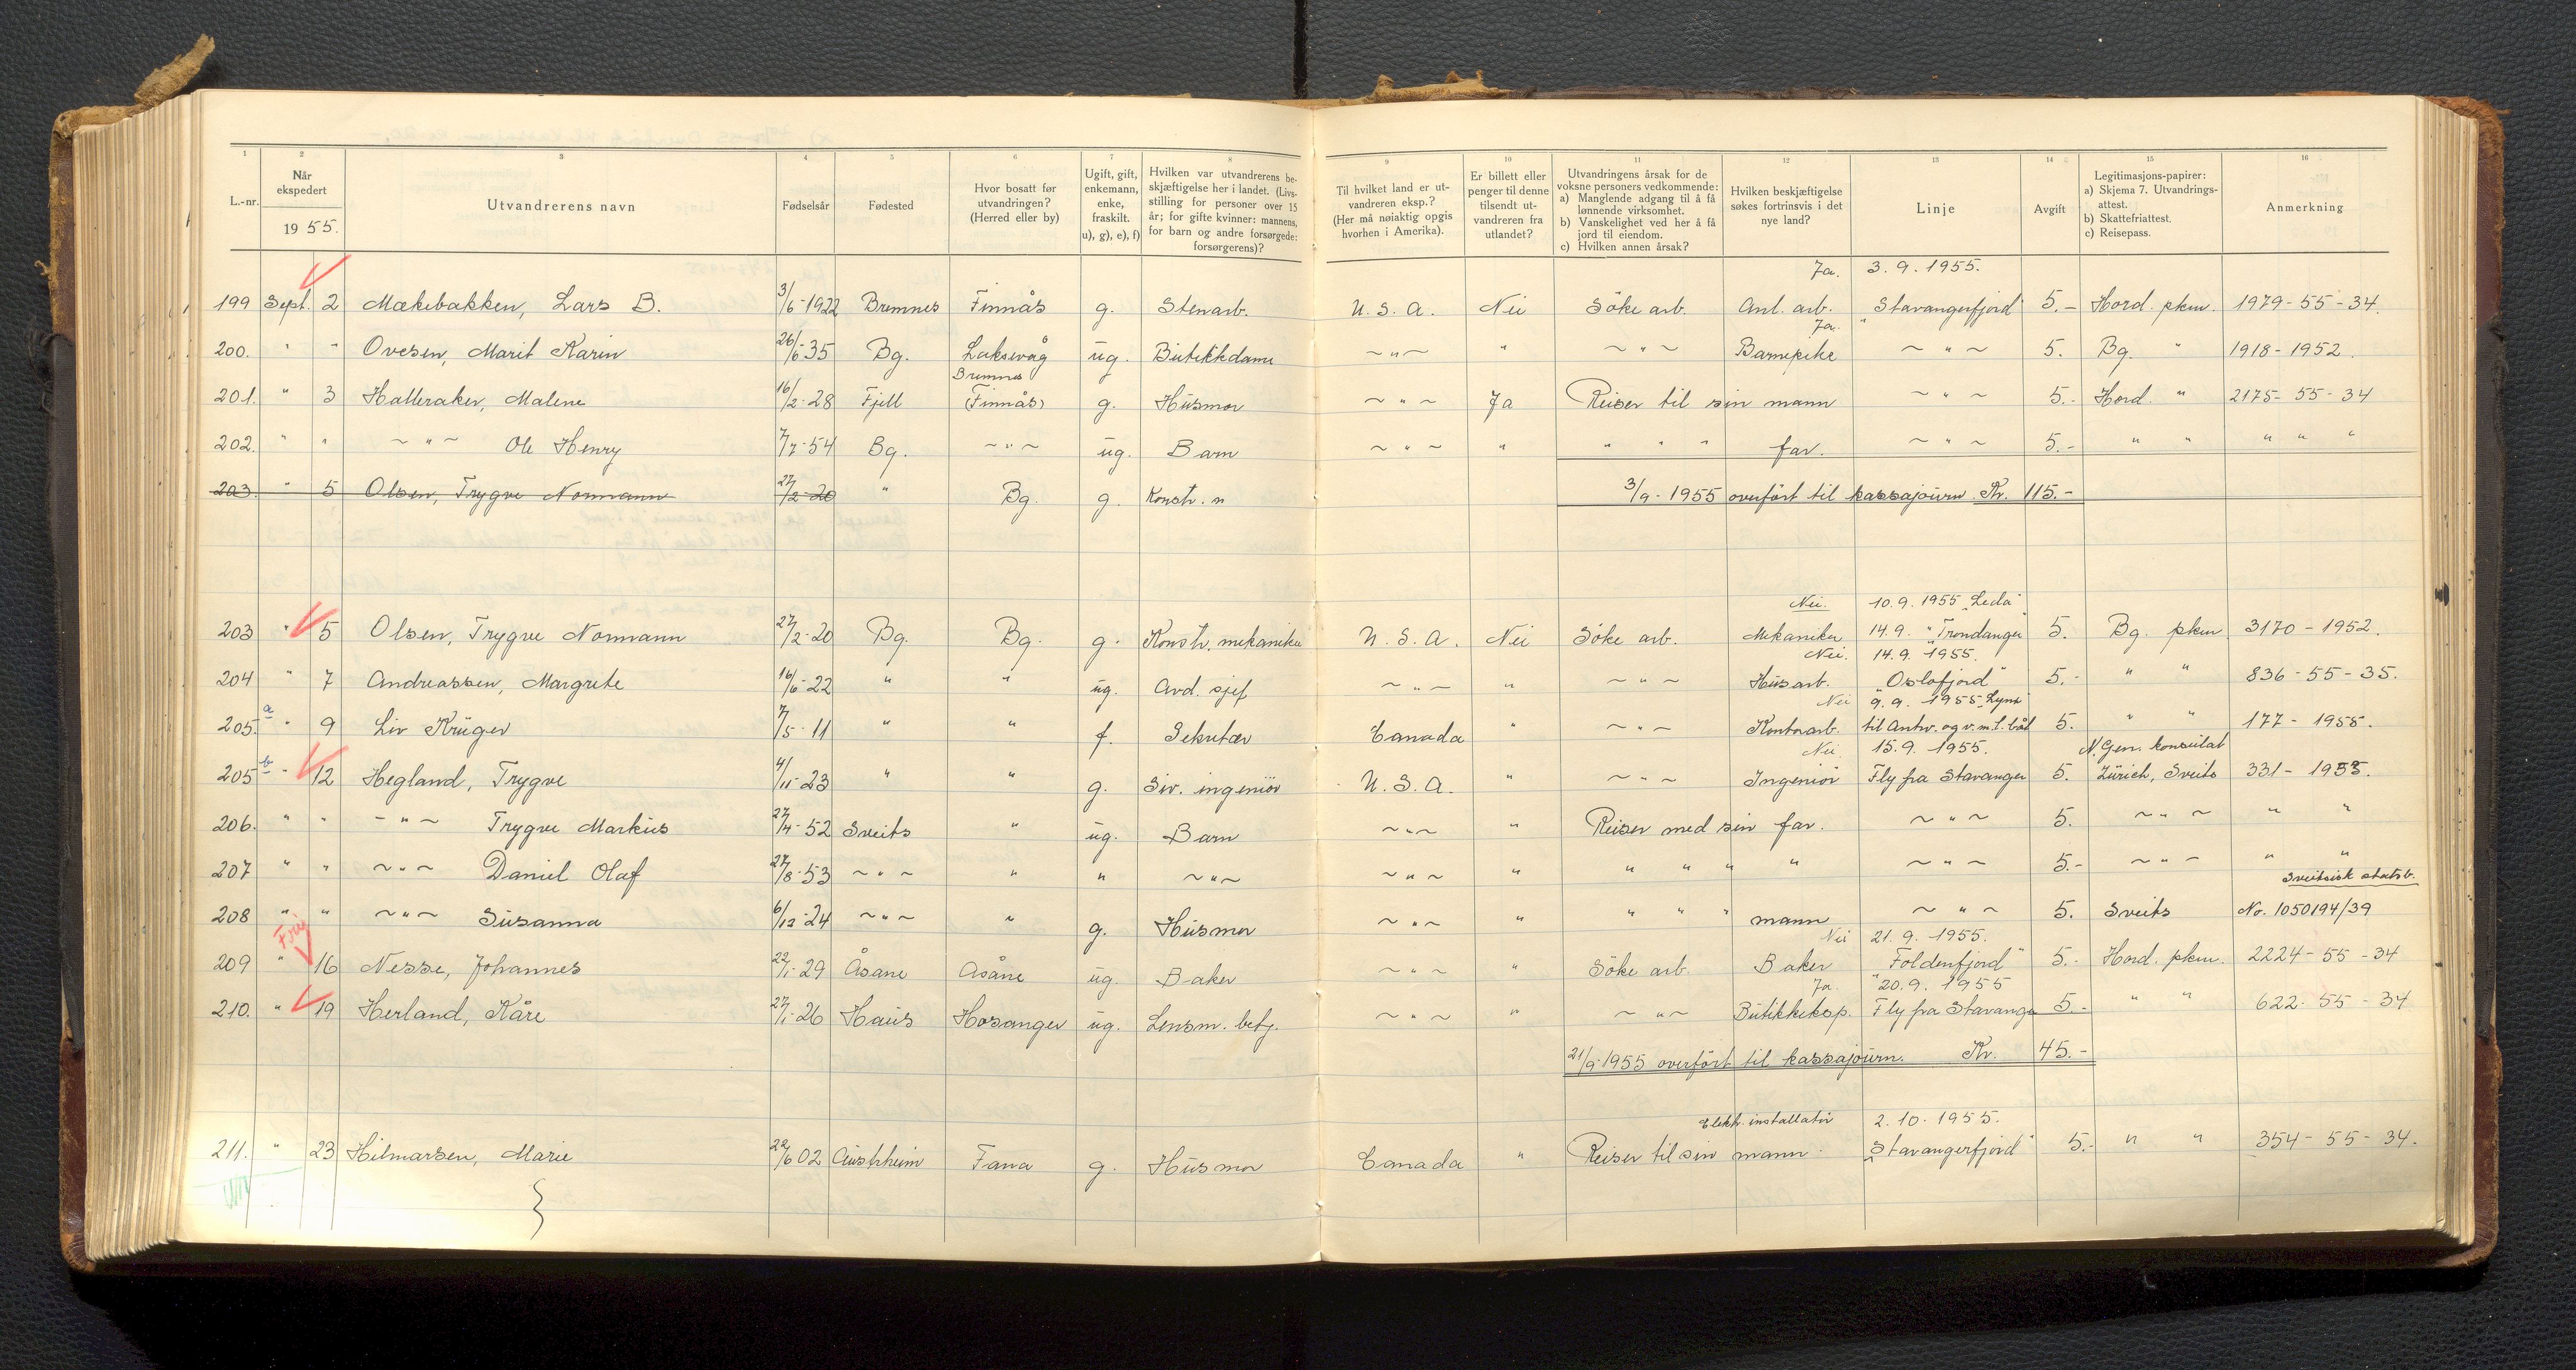 1 2 3 4 5 6 7 8 9 10 11 12 13 14 15 16
L.-nr. Når ekspedert 1955. Utvandrerens navn Fødselsår Fødested Hvor bosatt før utvandringen? (Herred eller by) Ugift, gift, enkemann, enke, fraskilt. u), g), e), f) Hvilken var utvandrerens beskjæftigelse her i landet. (Livsstilling for personer over 15 år; for gifte kvinner: mannens, for barn og andre forsørgede: forsørgerens)? Til hvilket land er utvandreren eksp.? (Her må nøiaktig opgis hvorhen i Amerika). Er billett eller penger til denne tilsendt utvandreren fra utlandet? Utvandringens årsak for de voksne personers vedkommende: a) Manglende adgang til å få lønnende virksomhet. b) Vanskelighet ved her å få jord til eiendom. c) Hvilken annen årsak? Hvilken beskjæftigelse søkes fortrinsvis i det nye land? Linje Avgift Legitimasjons-papirer: a) Skjema 7. Utvandringsattest. b) Skattefriattest. c) Reisepass. Anmerkning
Ja. 3.9.1955.
199 Sept. 2 Mækebakken, Lars B. 3/6-1922 Bremnes Finnås g. Stenarb. U.S.A. Nei Söke arb. Anl. arb. "Stavangerfjord" 5.- Hord. pkm. 1979-55-34.
Ja.
200. " " Ovesen, Marit Karin 26/6-35 Bg. Laksevåg ug. Butikkdame ~"~ " ~"~ Barnepike ~"~ 5. Bg. " 1918-1952.
Bremnes
201. " 3 Halleraker, Malene 16/2-28 Fjell (Finnås) g. Husmor ~"~ Ja Reiser til sin mann ~"~ 5.- Hord. " 2175-55-34
202. " " ~"~ Ole Henry 7/7-54 Bg. ~"~ ug. Barn ~"~ " " " " far. ~"~ 5.- " " " " "
203. " 5 Olsen, Trygve Normann 27/2-20 " Bg. g. Konstr. m 3/9-1955 overfört til kassajourn Kr. 115.-
Nei. 10.9.1955 "Leda"
203 " 5 Olsen, Trygve Normann 27/2-20 Bg. Bg. g. Konstr. mekaniker U.S.A. Nei Söke arb. Mekaniker 14.9. "Trondanger" 5. Bg. pkm 3170-1952.
Nei. 14.9.1955.
204 " 7 Andreassen, Margrete 16/6-22 " " ug. Avd. sjef ~"~ " ~"~ Husarb. "Oslofjord" 5.- " " 836-55-35.
Nei 9.9.1955 "Lyra"
205.a " 9 Liv Krüger 7/5-11 " " f. Sekretær Canada " ~"~ Kontorarb. til Antw. og v.m.l. båt 5. " " 177-1955.
Nei 15.9.1955. N. Gen. konsulat
205b - 12 Hegland, Trygve 4/11-23 " " g. Siv. ingeniör U.S.A. " ~"~ Ingeniör Fly fra Stavanger 5. Zürich, Sveits 331-1953.
206. " " -"~ Trygve Markus 27/4-52 Sveits " ug. Barn ~"~ " Reiser med sin far. ~"~ 5. ~"~ " "
207 " " ~"~ Daniel Olaf 27/8-53 ~"~ " " ~"~ ~"~ " " " " " ~"~ 5.- ~"~ " "
Sveitsisk statsb.
208 " " ~"~ Susanna 6/12-24 ~"~ " g. Husmor ~"~ " " " " mann ~"~ 5. Sveits No. 1050194/39
Fri Nei 21.9.1955.
209 " 16 Nesse, Johannes 22/1-29 Åsane Åsane ug. Baker ~"~ " Söke arb. Baker "Foldenfjord" 5.- Hord. pkm. 2224-55-34
Ja. 20.9.1955
210. " 19 Herland, Kåre 27/1-26 Haus Hosanger ug. Lensm. betj. ~"~ " ~"~ Butikkeksp. Fly fra Stavanger 5.- " " 622-55-34
21/9-1955 overfört til kassajourn. Kr. 45.-
Elektr. installatör 2.10.1955.
211. " 23 Hilmarsen, Marie 22/6 02 Austrheim Fana g. Husmor Canada " Reiser til sin mann. "Stavangerfjord" 5.- " " 354-55-34.